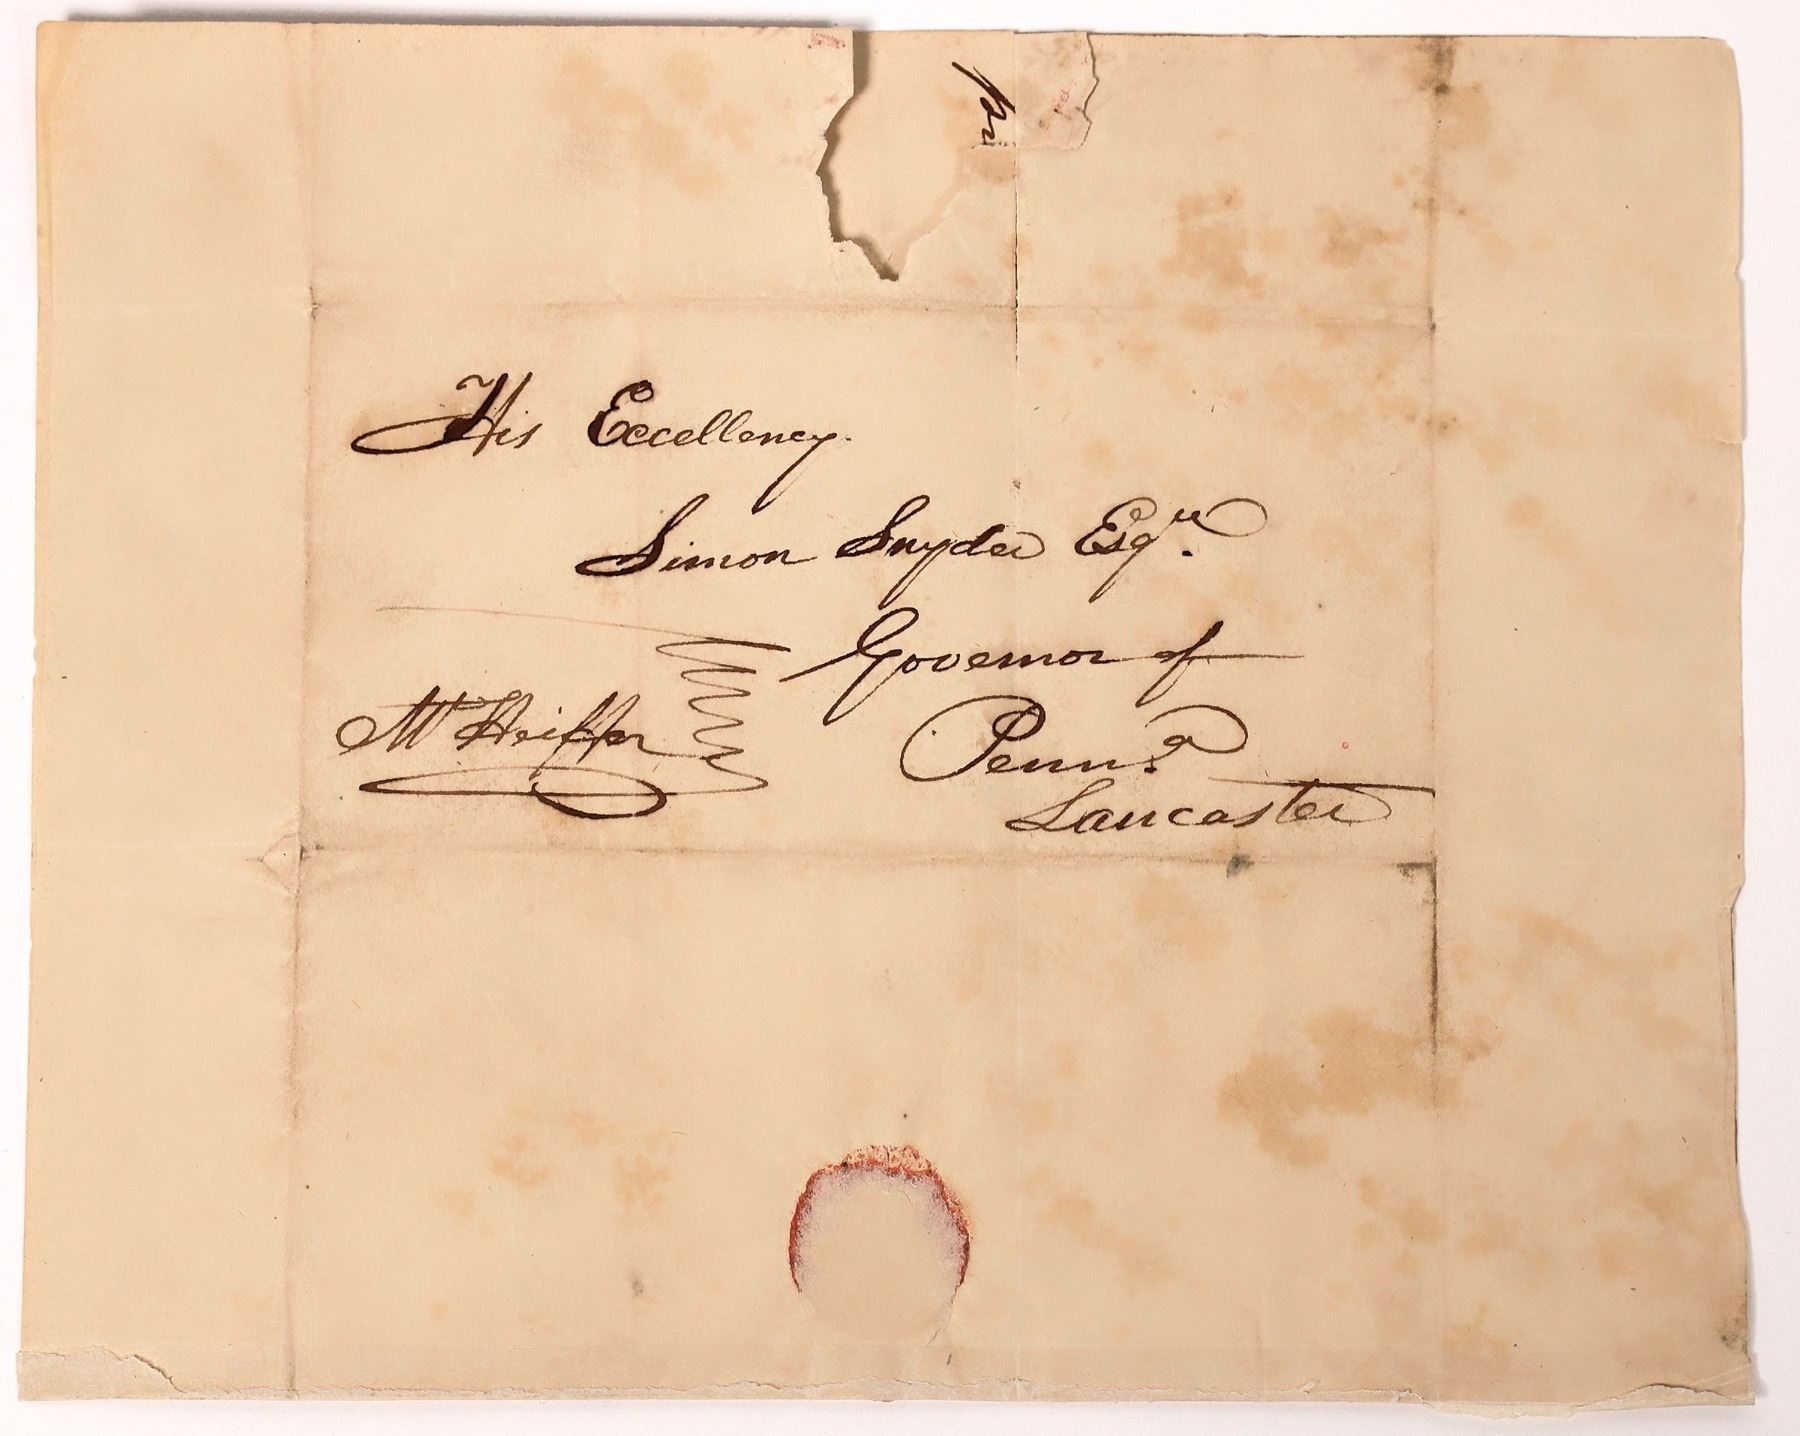 His Eccellency.
Simon Snyder Esqr.
Governor of
Penna.
Lancaster
Mr Heiffer